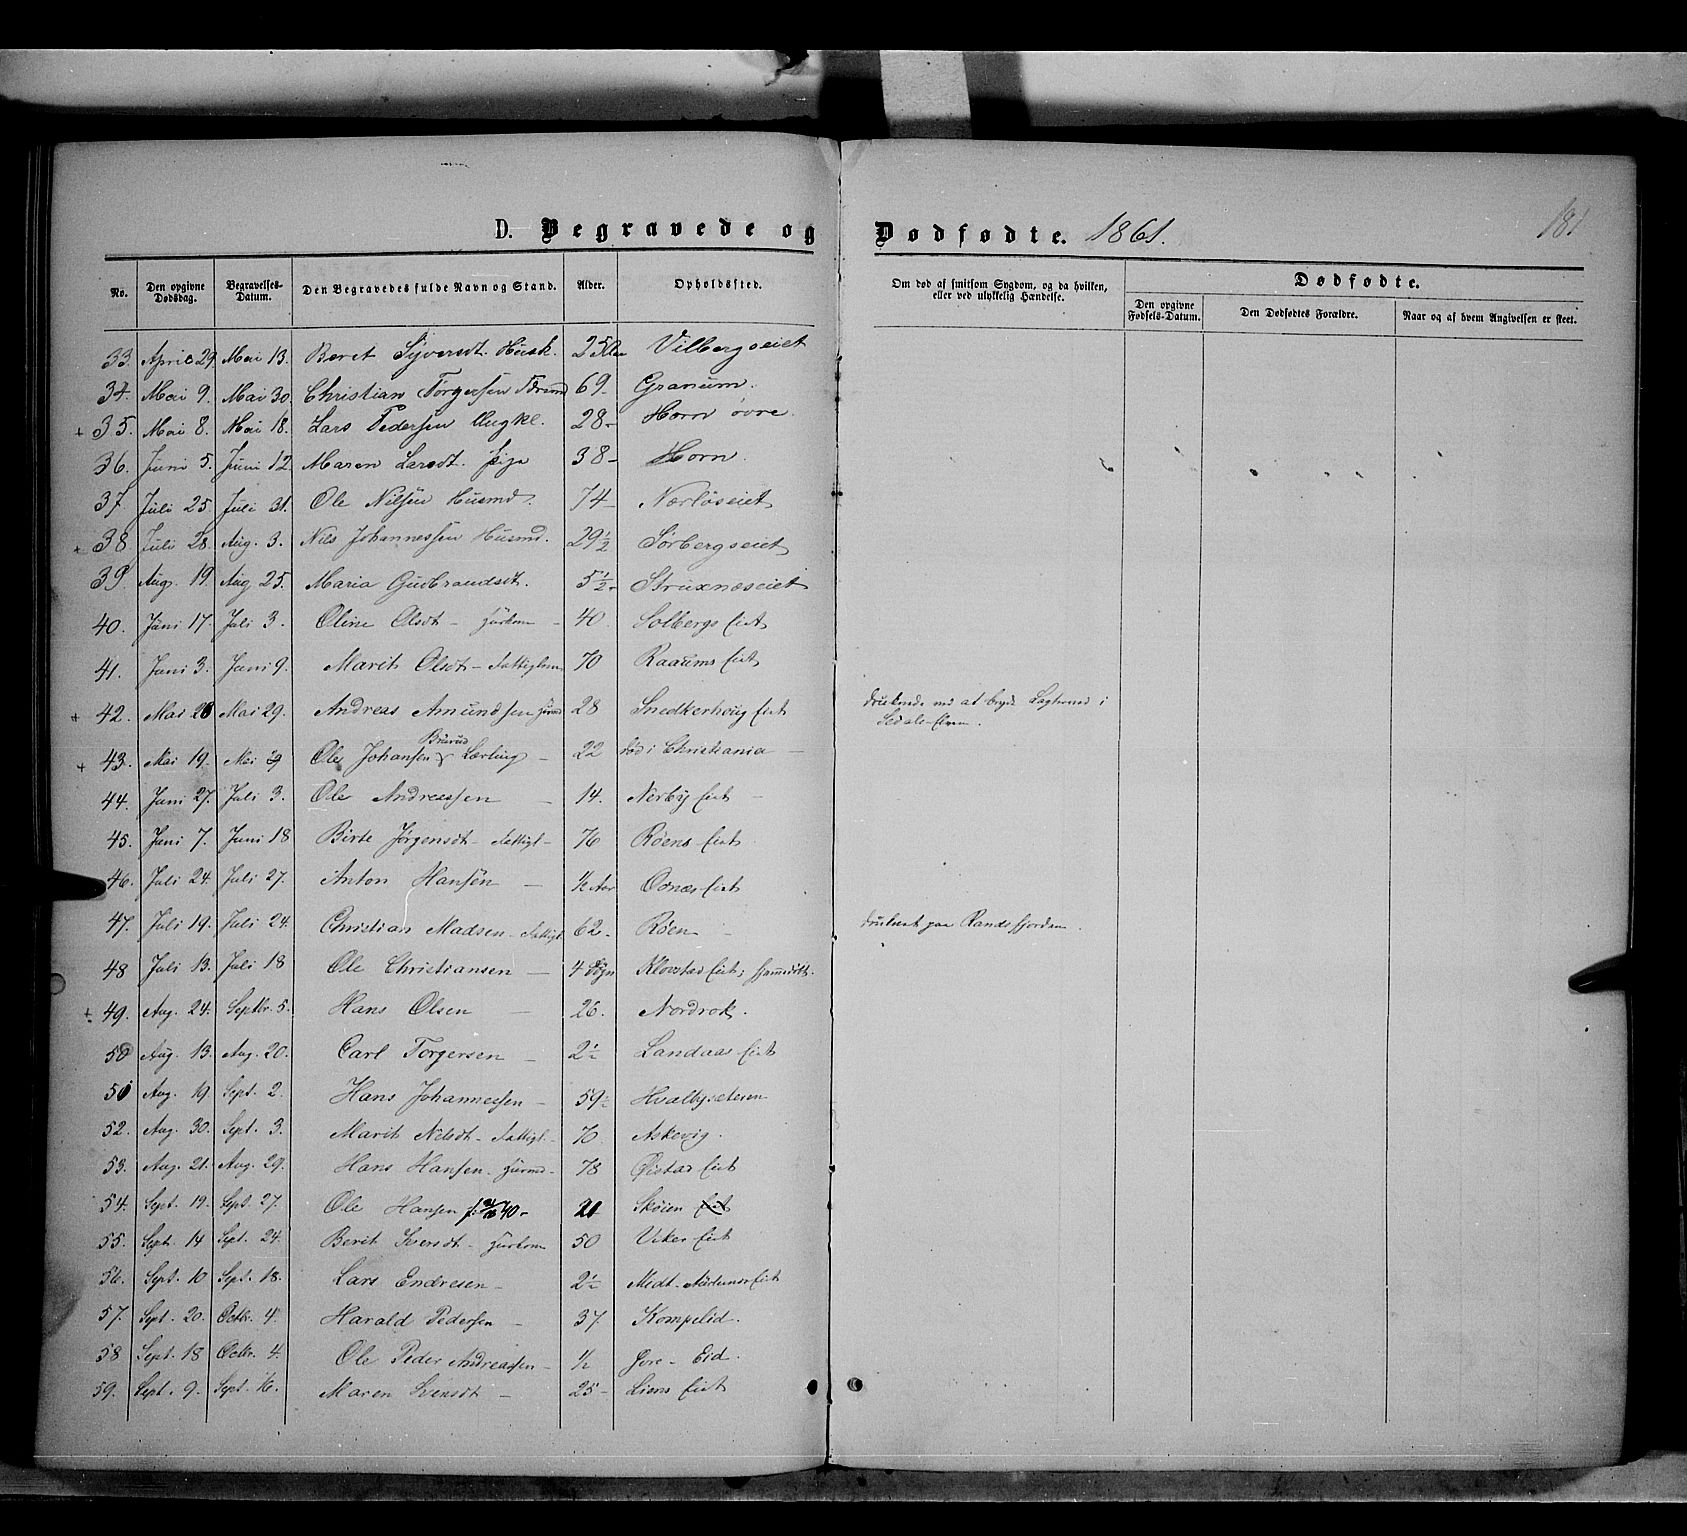 D. Begravede og Dødfødte. 1861.
181
No. Den opgivne Dødsdag. Begravelses-Datum. Den Begravedes fulde Navn og Stand. Alder. Opholdssted. Om død af smitsom Sygdom, og da hvilken, eller ved ulykkelig Hændelse. Dødfødte.
Den opgivne Fødsels-Datum. Den Dødfødtes Forældre. Naar og af hvem Angivelsen er skeet.
33. April 29. Mai 13. Beret Syversdt. Husk. 25 Vilbergseiet
34. Mai 9. Mai 30. Christian Torgersen 69- Granum.
+ 35. Mai 8. Mai 18. Lars Pedersen Ungkl. 28- Horn øvre.
36. Juni 5. Juni 12 Maren Larsdt. pige 38- Horn.
37. Juli 25. Juli 31. Ole Nilsen Husmd. 74- Nærløseiet
+ 38. Juli 28. Aug. 3. Nils Johannessen Husmd. 29½ Sørbergseiet
39. Aug. 19. Aug 25. Maria Gudbrandsdt. 5½- Struxnæseiet
40. Juni 17. Juli 3. Oline Olsdt - 40. Solbergs Eiet
41. Juni 3. Juni 9. Marit Olsdt - 70 Raaums Eiet
+ 42. Mai 20 Mai 29. Andreas Amundsen 28 Snedkerhoug Eiet druknede ved at bryde i
+ 43. Mai 19. Mai Ole Johansen Brurud Lærling - 22 død i Christiania -
44. Juni 27. Juli 3. Ole Andreassen - 14. Nerby Eiet -
45. Juni 7. Juni 18 Birte Jørgensdt - Fattigl- 76 Røens Eiet
46. Juli 24. Juli 27. Anton Hansen - ½ Aar Osnæs Eiet
47. Juli 19. Juli 24. Christian Madsen - Fattigl 62- Røen - druknet paa Randsfjorden.
48 Juli 13. Juli 18 Ole Christiansen - 4 Døgn Klovstad Eiet, hjemmedøbt.
+ 49. Aug. 24. Septbr. 5. Hans Olsen - 26. Nordrok.
50 Aug. 13. Aug. 20. Carl Torgersen - 2½ Landaas Eiet
51 Aug. 19. Sept. 2. Hans Johannesen - 59½ Hvalbysæteren
52. Aug. 30. Sept. 3. Marit Nilsdt - Fattigl. - 70 Askevig.
53. Aug. 21. Aug. 29. Hans Hansen - 78 Øistad Eiet
54. Sept. 19. Sept. 27. Ole Hansen 21 Skøien
55. Sept. 14 Sept. 24. Berit Svensdt - 50 Viker Eiet
56. Sept. 10 Sept. 18. Lars Endresen - 2½ Eiet
57. Sept. 20. Octbr. 4. Harald Pedersen - 37. Kompelid.
58 Sept. 18 Octbr. 4. Ole Peder Andreassen - ½ Eid.
59. Sept. 9. Sept. 16. Maren Svensdt - 25- Liens Eiet